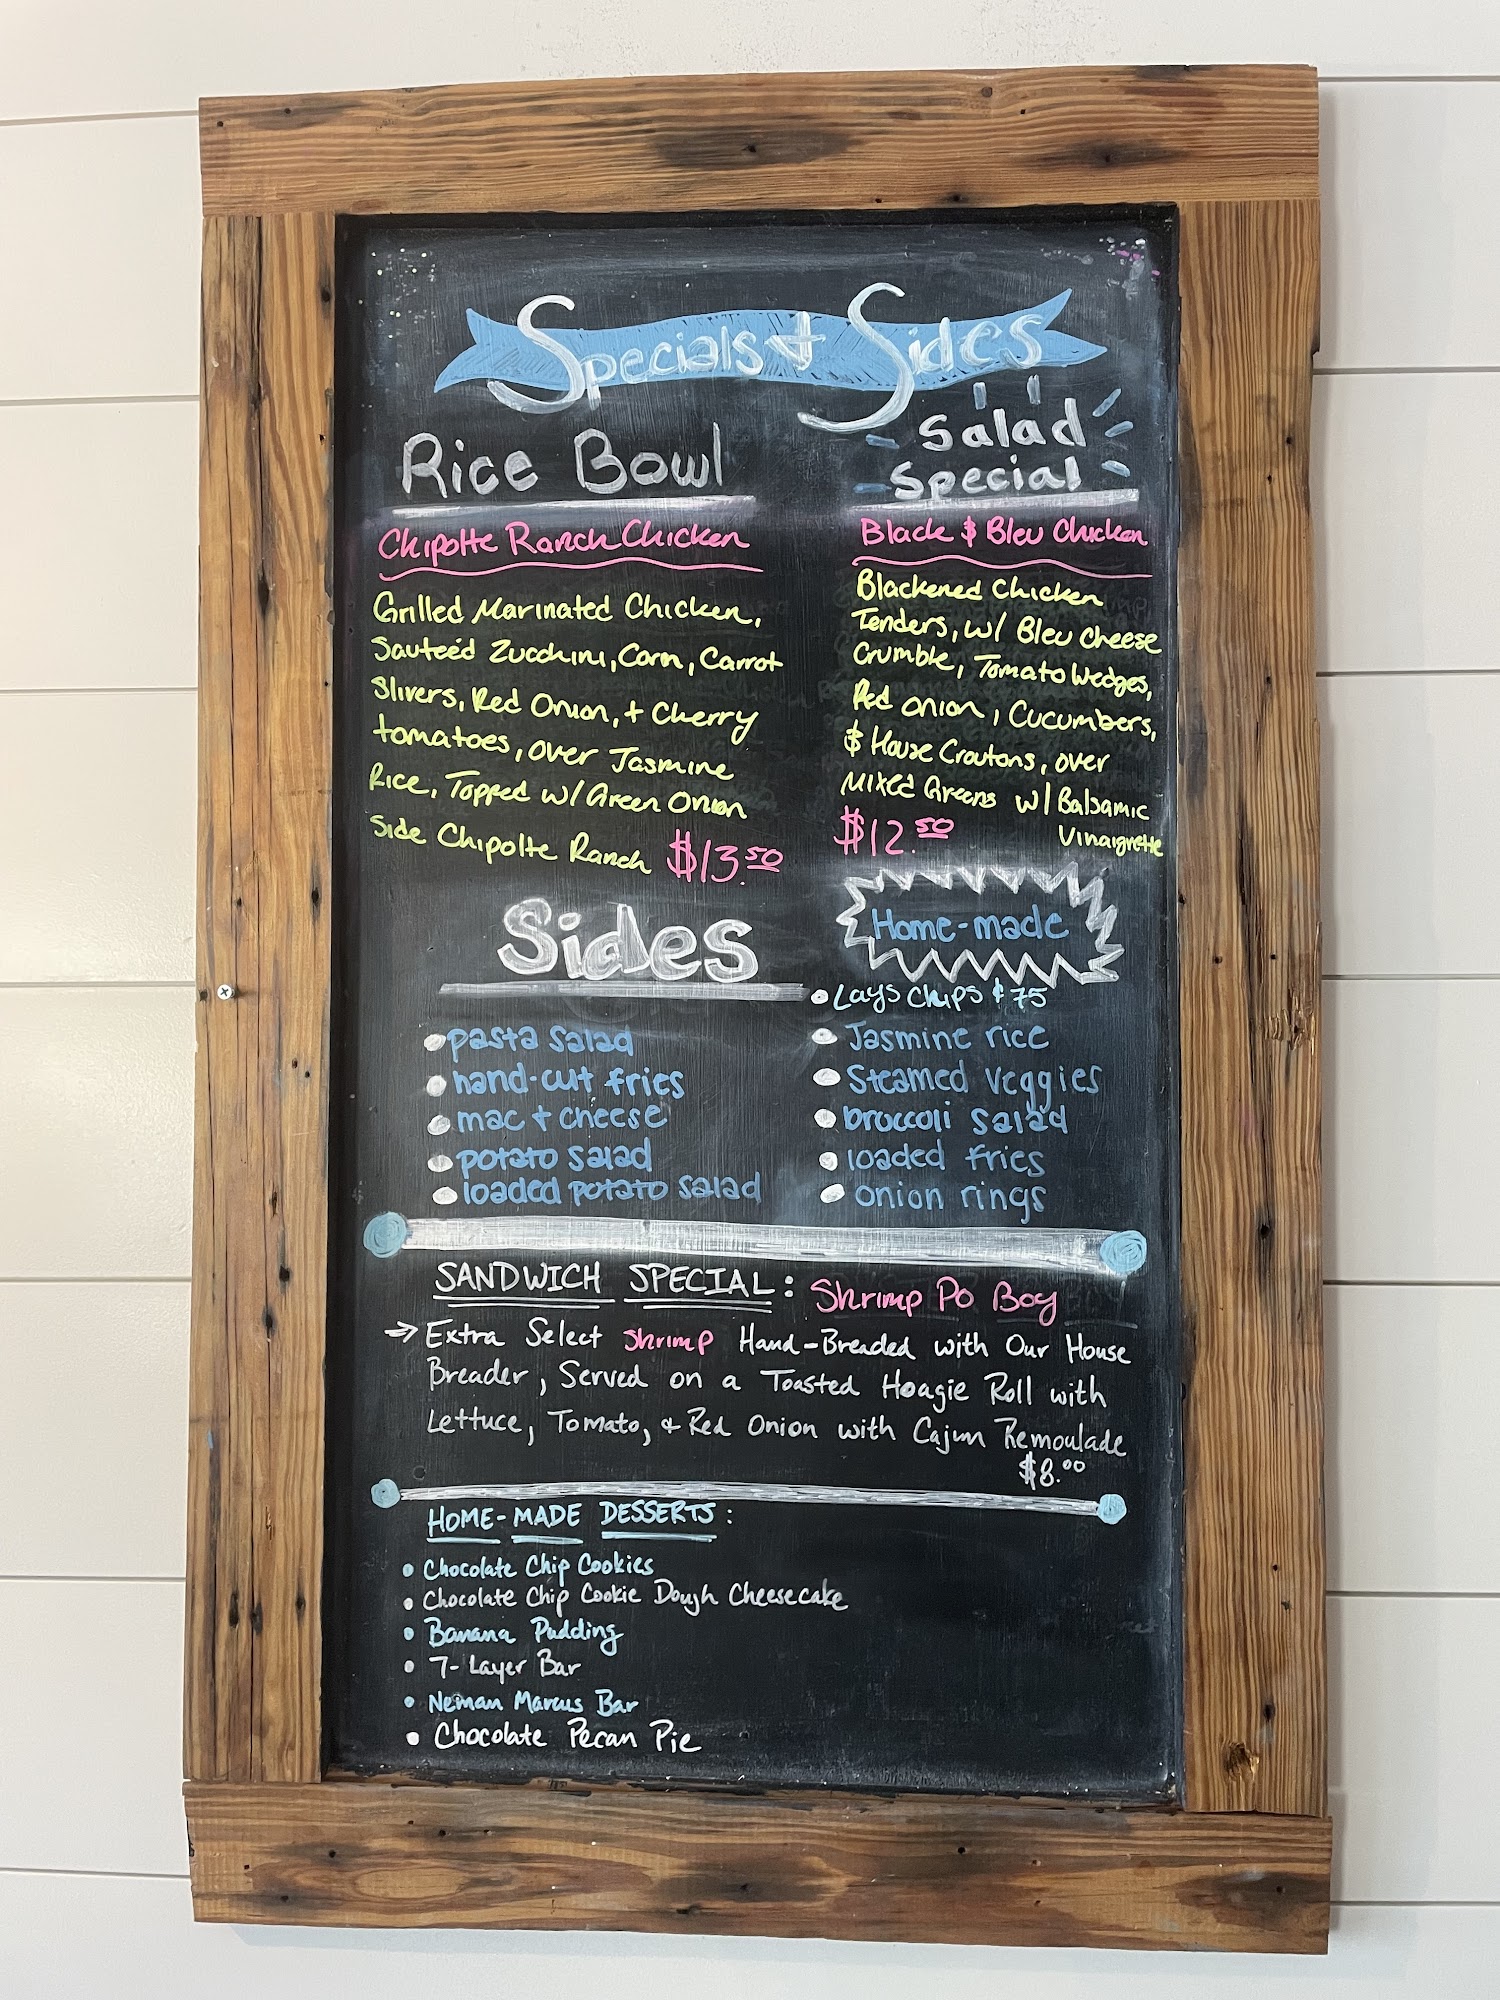 Specials + Sides
Rice Bowl
Chipolte Ranch Chicken
Grilled Marinated Chicken,
Sauteéd Zucchini, Corn, Carrot
Slivers, Red Onion, + Cherry
tomatoes, over Jasmine
Rice, Topped w/ Green Onion
Side Chipolte Ranch $13.50
Salad
Special
Black $ Bleu Chicken
Blackened Chicken
Tenders, w/ Bleu Cheese
Crumble, Tomato Wedges,
Red onion, Cucumbers,
$ House Croutons, over
Mixed Greens w/ Balsamic
Vinaigrette
$12.50
Sides
• pasta salad
• hand-cut fries
• mac + cheese
• potato salad
• loaded potato salad
Home-made
• Lays Chips $.75
• Jasmine rice
• Steamed veggies
• broccoli salad
• loaded fries
• onion rings
SANDWICH SPECIAL: Shrimp Po Boy
→ Extra Select Shrimp Hand-Breaded with Our House
Breader, Served on a Toasted Hoagie Roll with
Lettuce, Tomato, + Red Onion with Cajun Remoulade
$8.00
HOME-MADE DESSERTS:
• Chocolate Chip Cookies
• Chocolate Chip Cookie Dough Cheesecake
• Banana Pudding
• 7-Layer Bar
• Neman Marcus Bar
• Chocolate Pecan Pie